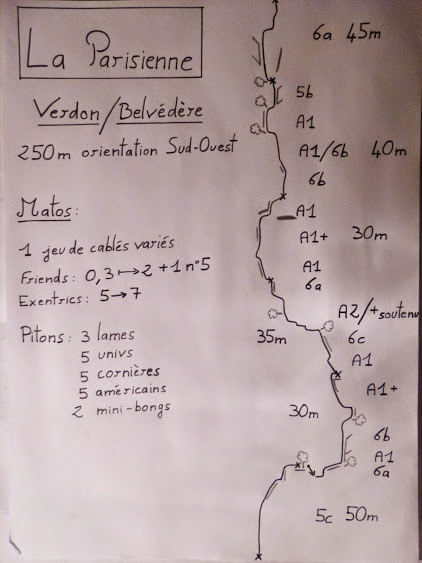 La Parisienne
Verdon/Belvédère
250m orientation Sud-Ouest
Matos:
1 jeu de cablés variés
Friends: 0,3 ↦ 2 + 1 n°5
Exentrics: 5 → 7
Pitons: 3 lames
5 univs
5 cornières
5 américains
2 mini-bongs
6a 45m
5b
A1
A1/6b 40m
6b
A1
A1+ 30m
A1
6a
A2/+soutenu
35m 6c
A1
A1+
30m
6b
A1
6a
5c 50m